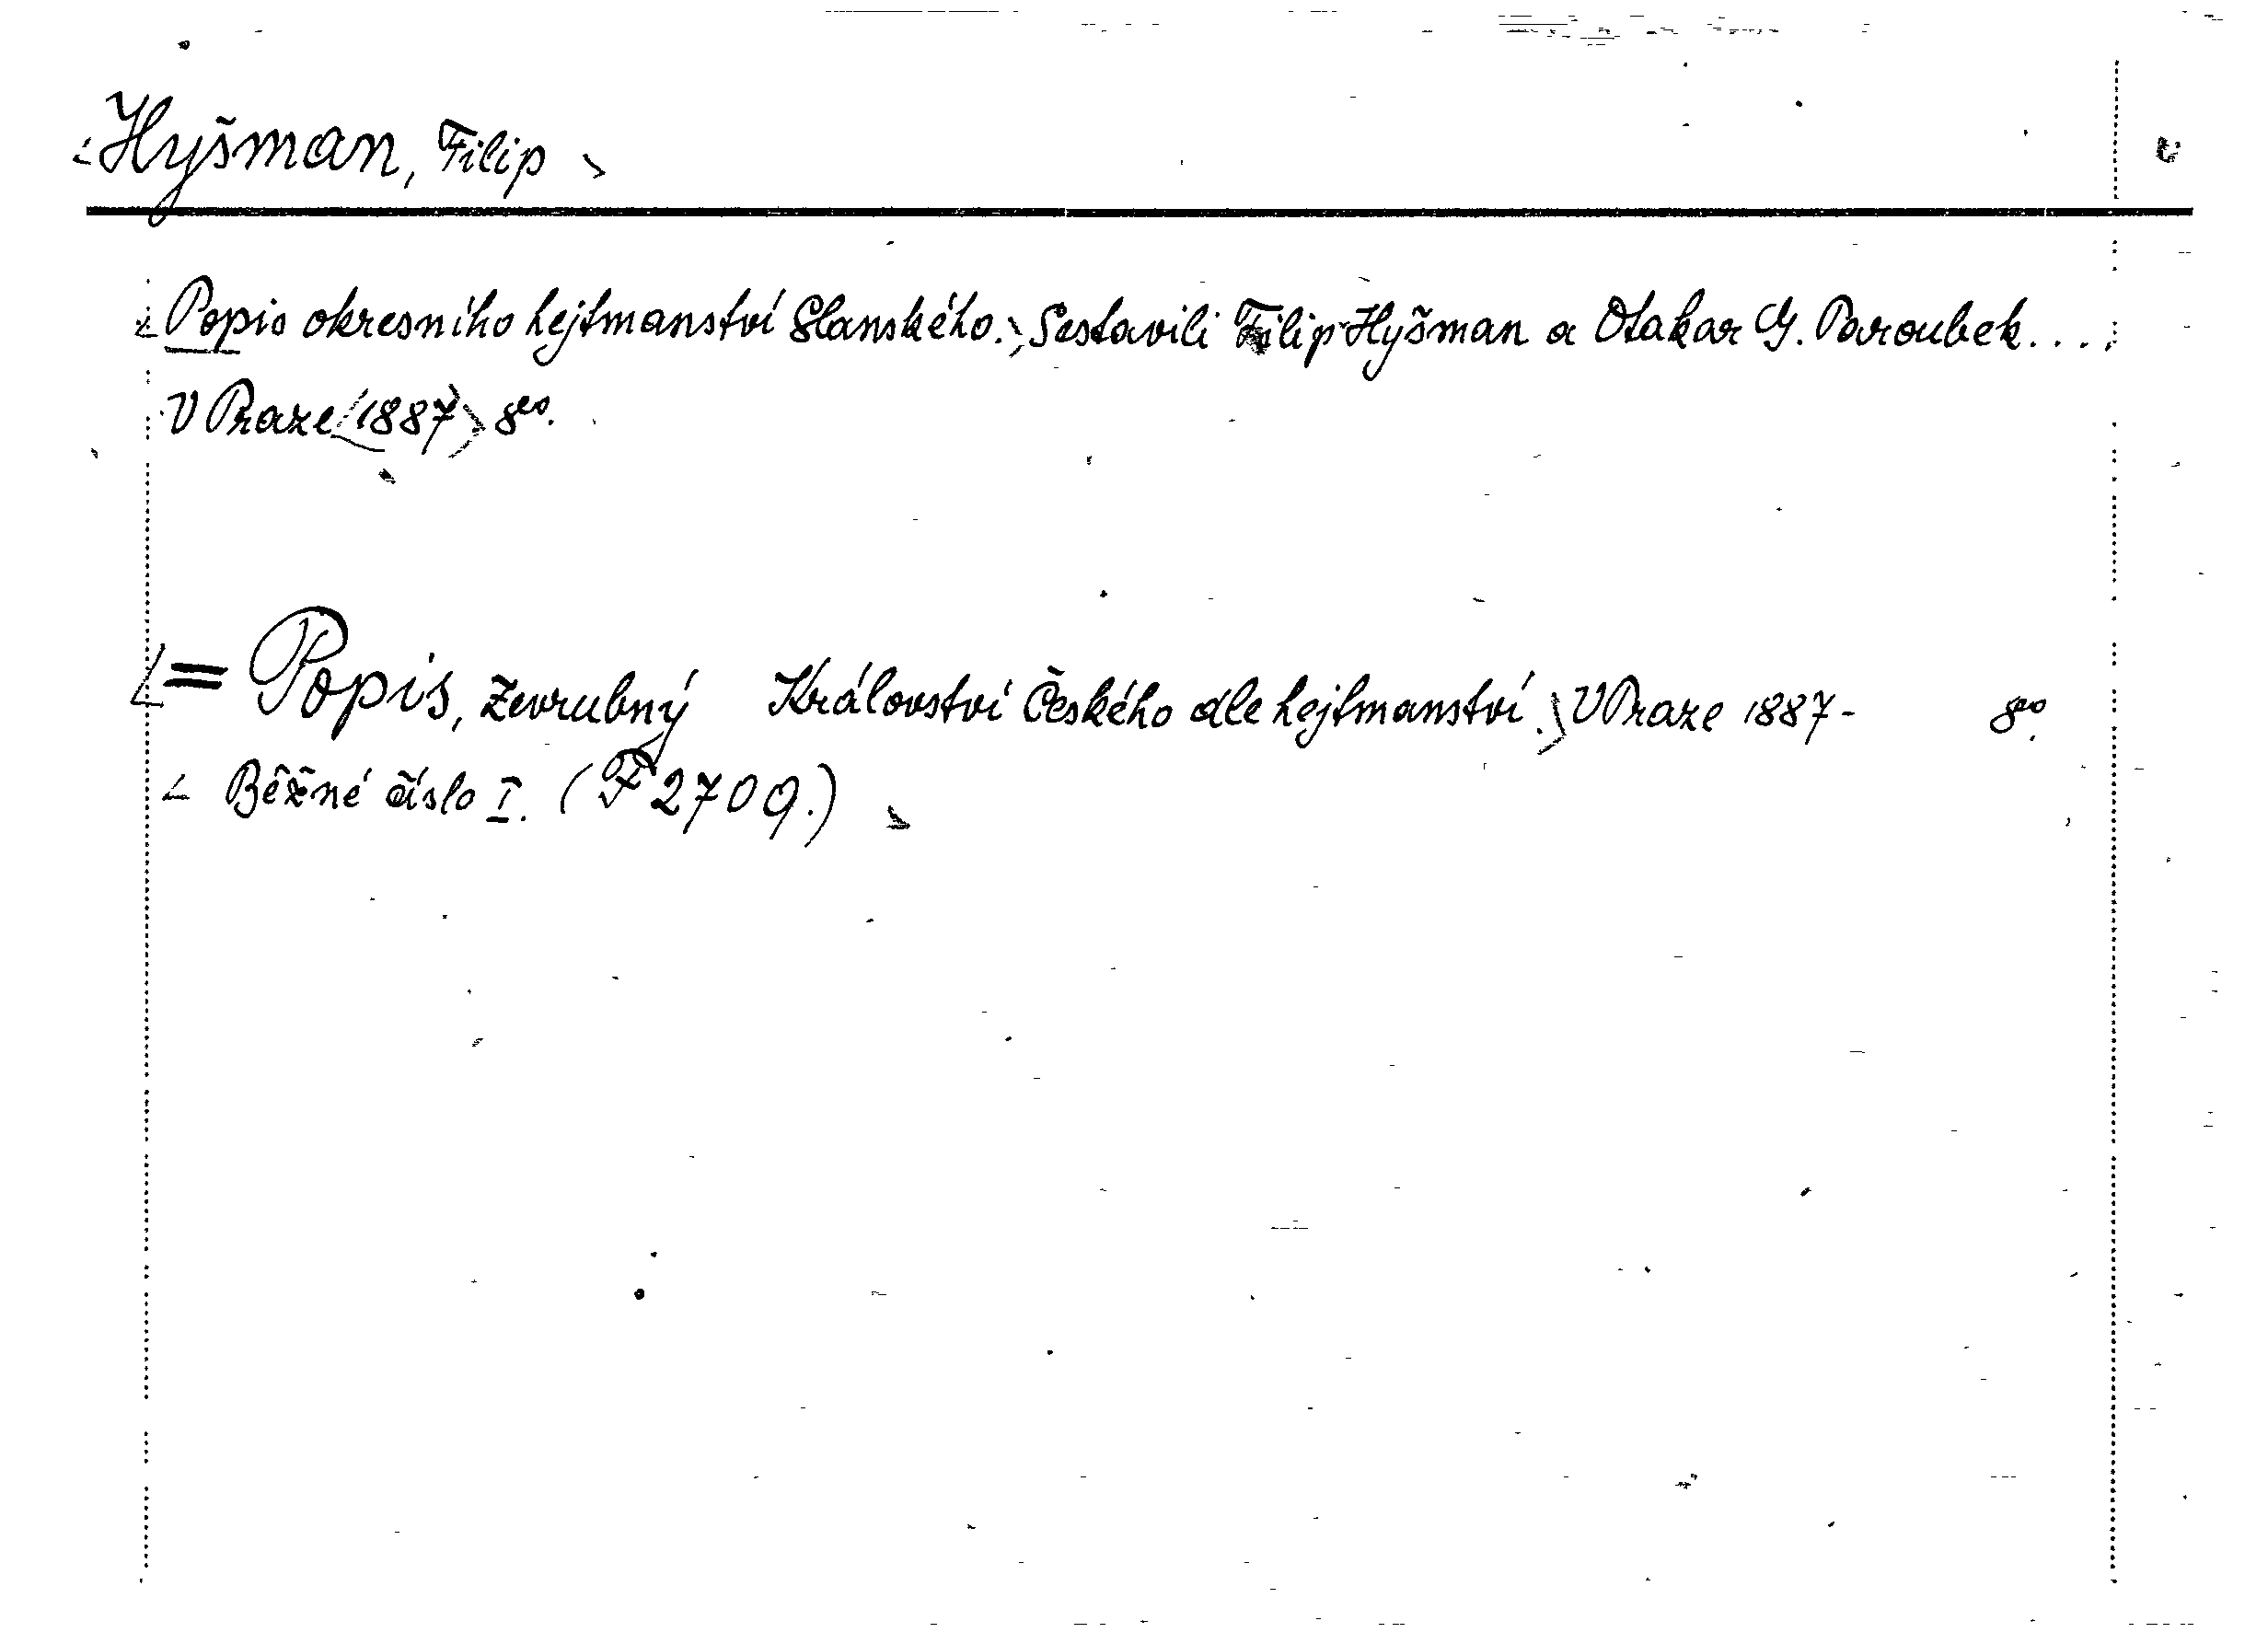 Hyšman, Filip
Popis okresního hejtmanství Slanského. Sestavili Filip Hyšman a Otakar G. Paroubek....
V Praze 1887 8eo.
= Popis, zevrubný Království Českého dle hejtmanství. V Praze 1887- 8eo.
Běžné číslo I. (F 2709.)